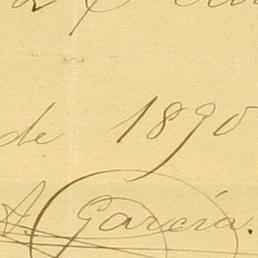 de 1890
A. García.